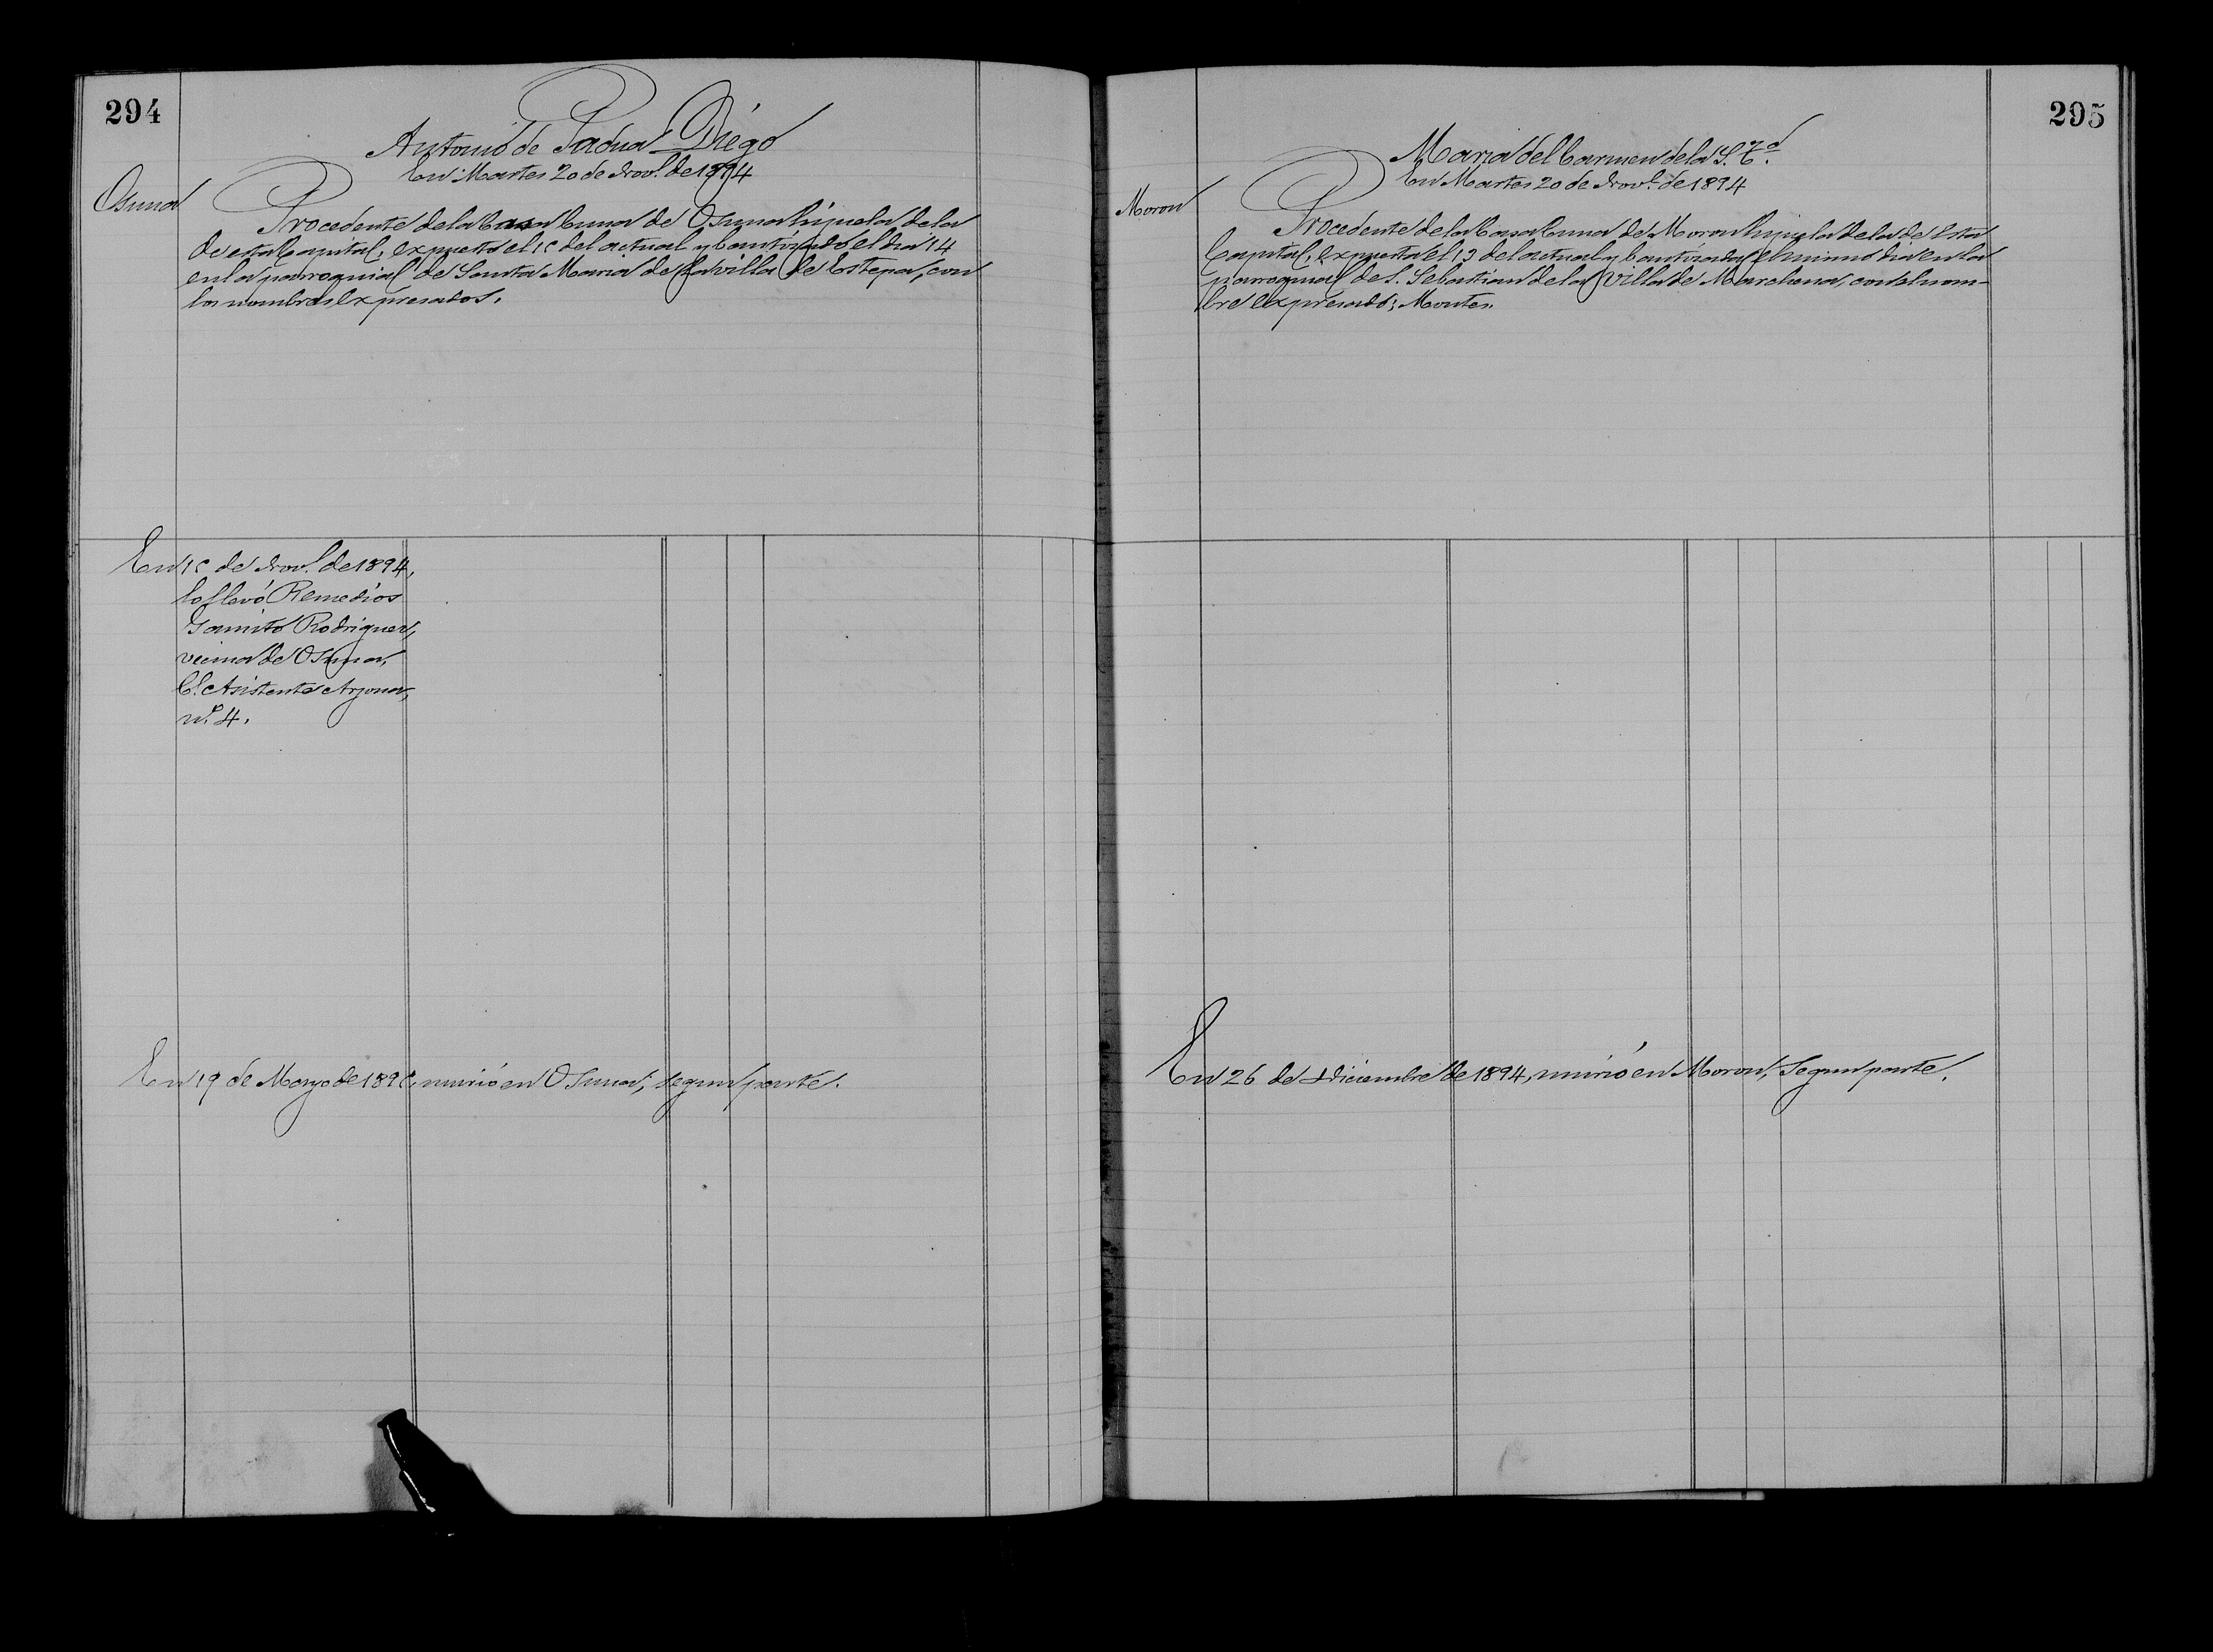 294
Antonio de Padua Diego
En Martes 20 de Novl. de 1894
Osuna
Procedente de la Casa Cuna de Osuna hijuela de la
de esta Capital, expuesto el 15 del actual y bautizado el dia 14
en la parroquial de Santa Maria de la villa de Estepa, con
los nombres expresados.
En 15 de Novl. de 1894,
lo llevó Remedios
Gamito Rodriguez,
vecina de Osuna,
Cl. Asistente Arjona,
nº. 4.
En 19 de Mayo de 1895, murió en Osuna, segun parte.
295
Maria del Carmen de la S. Td.
En Martes 20 de Novl. de 1894
Moron
Procedente de la Casa Cuna de Moron hijuela de la de esta
Capital, expuesta el 13 del actual y bautizada el mismo dia en la
parroquial de S. Sebastian de la villa de Marchena, con el nom-
bre expresado; Montes.
En 26 de Diciembre de 1894, murió en Moron, segun parte.